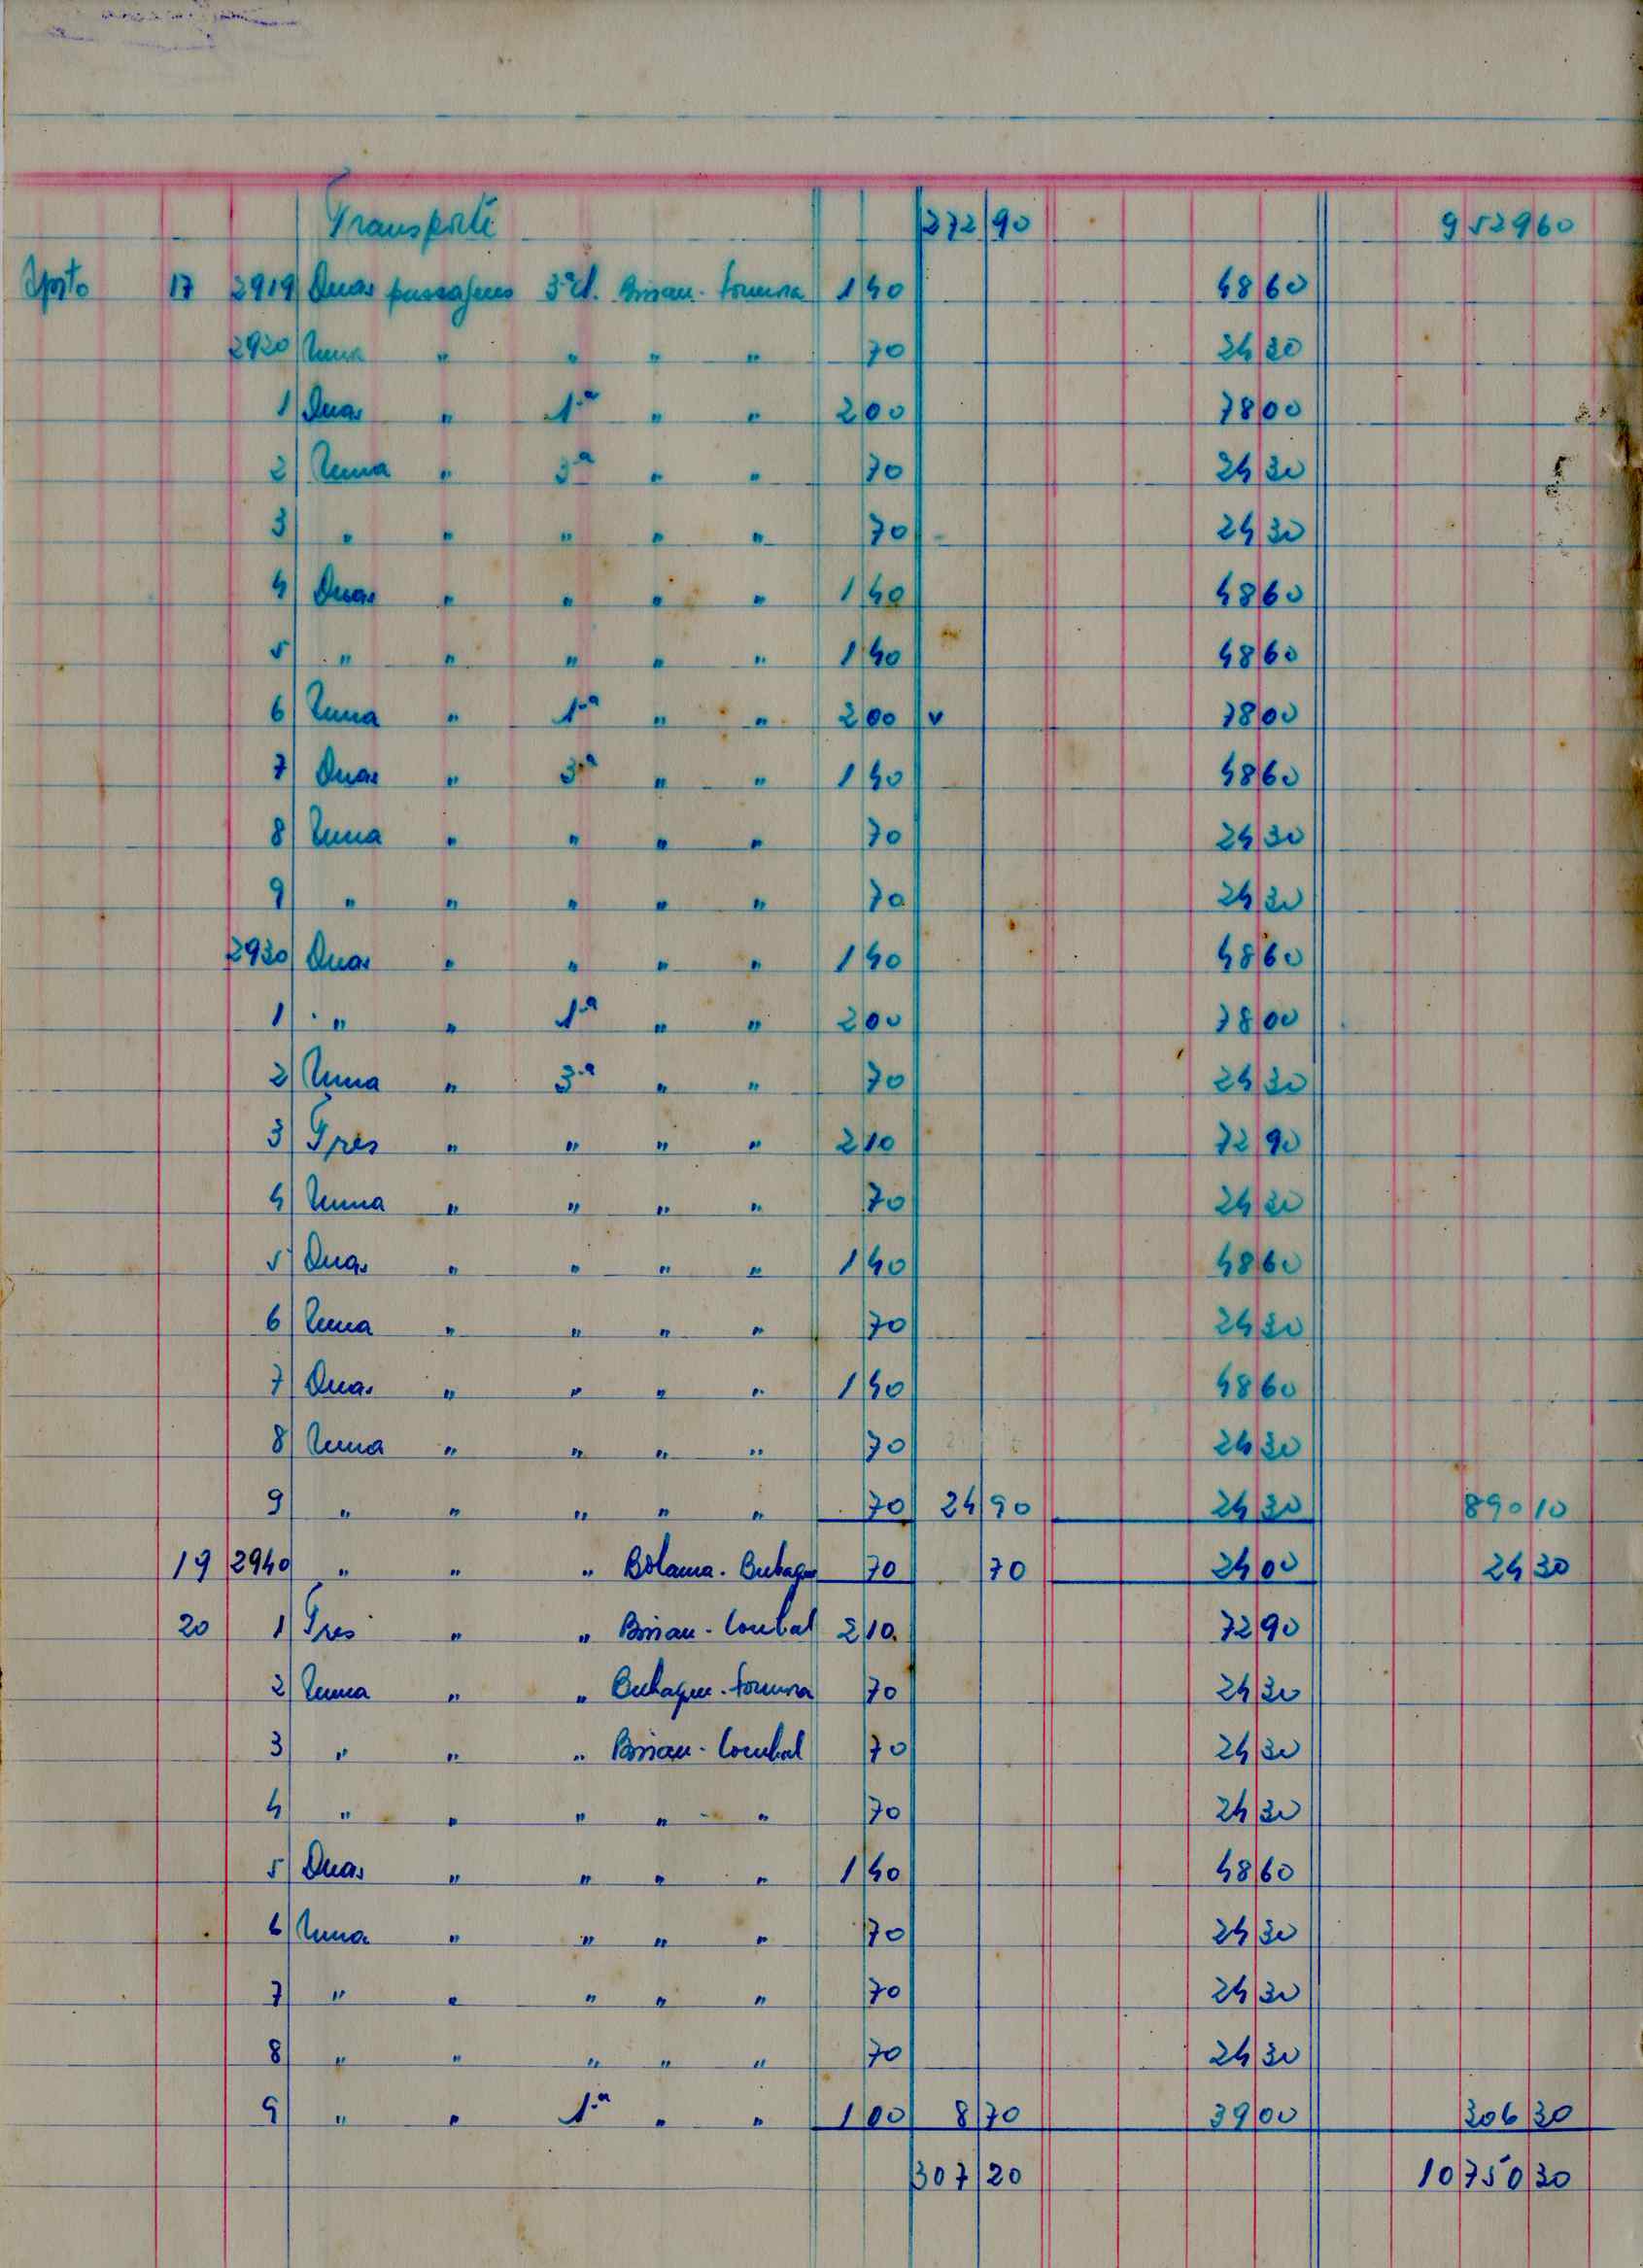 Transporte 272 90 9529 60
Agosto 17 2919 Duas passagens 3ª cl. Bissau - 1 40 48 60
2920 Uma " " " " 70 24 30
1 Duas " 1ª " " 2 00 78 00
2 Uma " 3ª " " 70 24 30
3 " " " " " 70 24 30
4 Duas " " " " 1 40 48 60
5 " " " " " 1 40 48 60
6 Uma " 1ª " " 2 00 v 78 00
7 Duas " 3ª " " 1 40 48 60
8 Uma " " " " 70 24 30
9 " " " " " 70 24 30
2930 Duas " " " " 1 40 48 60
1 " " 1ª " " 2 00 78 00
2 Uma " 3ª " " 70 24 30
3 Tres " " " " 2 10 72 90
4 Uma " " " " 70 24 30
5 Duas " " " " 1 40 48 60
6 Uma " " " " 70 24 30
7 Duas " " " " 1 40 48 60
8 Uma " " " " 70 24 30
9 " " " " " 70 24 90 24 30 890 10
19 2940 " " " Bolama - Bubaque 70 70 24 00 24 30
20 1 Tres " " Bissau - 2 10 72 90
2 Uma " " Bubaque - 70 24 30
3 " " " Bissau - 70 24 30
4 " " " " " 70 24 30
5 Duas " " " " 1 40 48 60
6 Uma " " " " 70 24 30
7 " " " " " 70 24 30
8 " " " " " 70 24 30
9 " " 1ª " " 1 00 8 70 39 00 306 30
307 20 10750 30